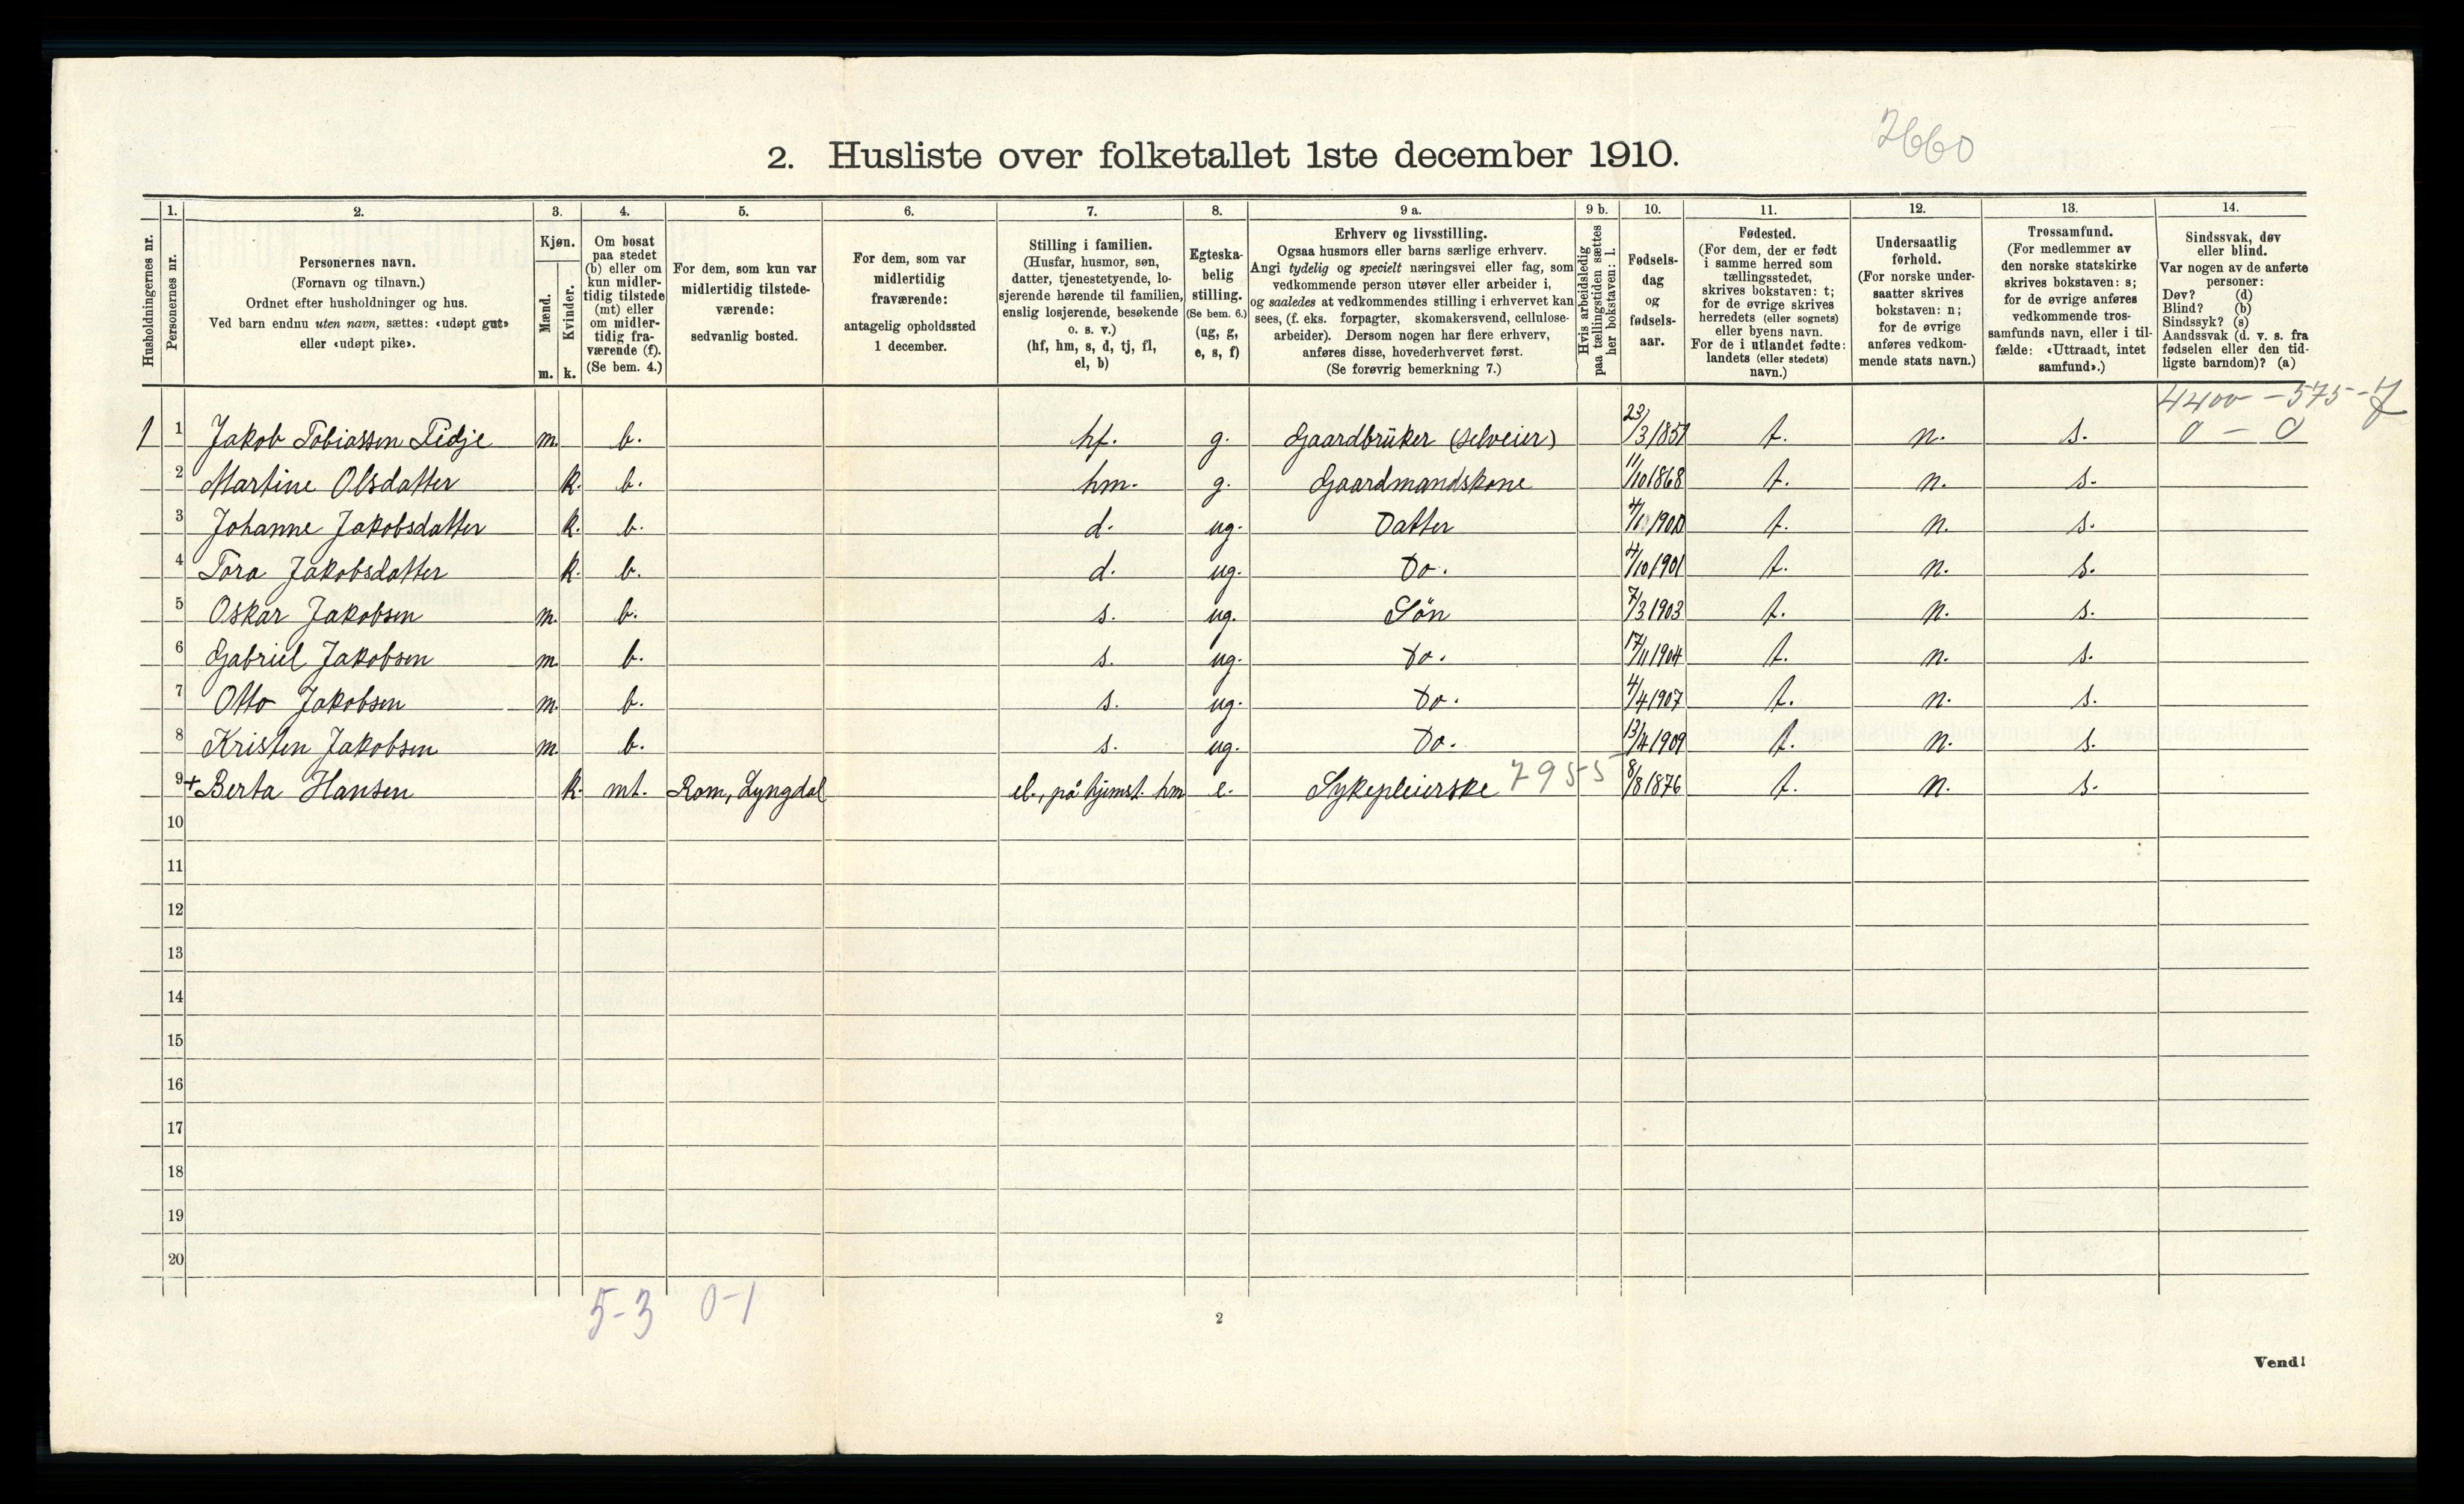 2660
2. Husliste over folketallet 1ste december 1910.
Husholdningernes nr.
1.
Personernes nr.
2.
Personernes navn.
(Fornavn og tilnavn.)
Ordnet efter husholdninger og hus.
Ved barn endnu uten navn, sættes: «udøpt gut»
eller «udøpt pike».
3.
Kjøn.
Mænd.
Kvinder.
m. k.
4.
Om bosat
paa stedet
(b) eller om
kun midler-
tidig tilstede
(mt) eller
om midler-
tidig fra-
værende (f).
(Se bem. 4.)
5.
For dem, som kun var
midlertidig tilstede-
værende:
sedvanlig bosted.
6.
For dem, som var
midlertidig
fraværende:
antagelig opholdssted
1 december.
7.
Stilling i familien.
(Husfar, husmor, søn,
datter, tjenestetyende, lo-
sjerende hørende til familien,
enslig losjerende, besøkende
o. s. v.)
(hf, hm, s, d, tj, fl,
el, b)
8.
Egteska-
belig
stilling.
(Se bem. 6.)
(ug, g,
e, s, f)
9 a.
Erhverv og livsstilling.
Ogsaa husmors eller barns særlige erhverv.
Angi tydelig og specielt næringsvei eller fag, som
vedkommende person utøver eller arbeider i,
og saaledes at vedkommendes stilling i erhvervet kan
sees, (f. eks. forpagter, skomakersvend, cellulose-
arbeider). Dersom nogen har flere erhverv,
anføres disse, hovederhvervet først.
(Se forøvrig bemerkning 7.)
9 b.
Hvis arbeidsledig
paa tællingstiden sættes
her bokstaven: l.
10.
Fødsels-
dag
og
fødsels-
aar.
11.
Fødested.
(For dem, der er født
i samme herred som
tællingsstedet,
skrives bokstaven: t;
for de øvrige skrives
herredets (eller sognets)
eller byens navn.
For de i utlandet fødte:
landets (eller stedets)
navn.)
12.
Undersaatlig
forhold.
(For norske under-
saatter skrives
bokstaven: n;
for de øvrige
anføres vedkom-
mende stats navn.)
13.
Trossamfund.
(For medlemmer av
den norske statskirke
skrives bokstaven: s;
for de øvrige anføres
vedkommende tros-
samfunds navn, eller i til-
fælde: «Uttraadt, intet
samfund».)
14.
Sindssvak, døv
eller blind.
Var nogen av de anførte
personer:
Døv? (d)
Blind? (b)
Sindssyk? (s)
Aandssvak (d. v. s. fra
fødselen eller den tid-
ligste barndom)? (a)
4400 - 575 - 7
1 1 Jakob Tobiassen Tidje m. b. hf. g. Gaardbrüker (selveier) 23/3 1851 t. n. s. 0 - 0
2 Martine Olsdatter k. b. hm. g. Gaardmandskone 11/10 1868 t. n. s.
3 Johanne Jakobsdatter k. b. d. ug. Datter t. n. s.
4 Tora Jakobsdatter k. b. d. ug. Do. 4/10 1901 t. n. s.
5 Oskar Jakobsen m. b. s. ug. Sön 7/3 1903 t. n. s.
6 Gabriel Jakobsen m. b. s. ug. Do. 17/11 1904 t. n. s.
7 Otto Jakobsen m. b. s. ug. Do. 4/4 1907 t. n. s.
8 Kristen Jakobsen m. b. s. ug. Do. 13/4 1909 t. n. s.
9 + Berta Hansen k. mt. Rom, Lyngdal el., på hjemst. hm e. Sykepleierske 7955 8/8 1876 t. n. s.
10
11
12
13
14
15
16
17
18
19
20
5-3 0-1
2
Vend!